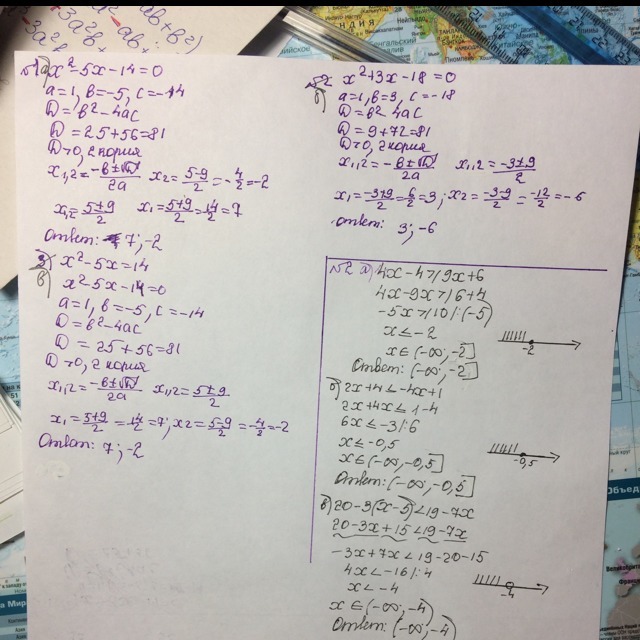 №1 а) x²-5x-14=0
a=1, b=-5, c=-14
D=b²-4ac
D=25+56=81
D>0, 2 корня
x₁,₂=(-b±√D)/2a x₂=(5-9)/2=-4/2=-2
x₁,₂=(5±9)/2 x₁=(5+9)/2=14/2=7
Ответ: 7; -2
в) x²-5x=14
x²-5x-14=0
a=1, b=-5, c=-14
D=b²-4ac
D=25+56=81
D>0, 2 корня
x₁,₂=(-b±√D)/2a x₁,₂=(5±9)/2
x₁=(5+9)/2=14/2=7; x₂=(5-9)/2=-4/2=-2
Ответ: 7; -2
б) x²+3x-18=0
a=1, b=3, c=-18
D=b²-4ac
D=9+72=81
D>0, 2 корня
x₁,₂=(-b±√D)/2a x₁,₂=(-3±9)/2
x₁=(-3+9)/2=6/2=3; x₂=(-3-9)/2=-12/2=-6
Ответ: 3; -6
№2 а) 4x-4≥9x+6
4x-9x≥6+4
-5x≥10|:(-5)
x≤-2
-2
x∈(-∞;-2]
Ответ: (-∞;-2]
б) 2x+4≤-4x+1
2x+4x≤1-4
6x≤-3|:6
x≤-0,5
-0,5
x∈(-∞;-0,5]
Ответ: (-∞;-0,5]
в) 20-3(x-5)<19-7x
20-3x+15<19-7x
-3x+7x<19-20-15
4x<-16|:4
x<-4
-4
x∈(-∞;-4)
Ответ: (-∞;-4)